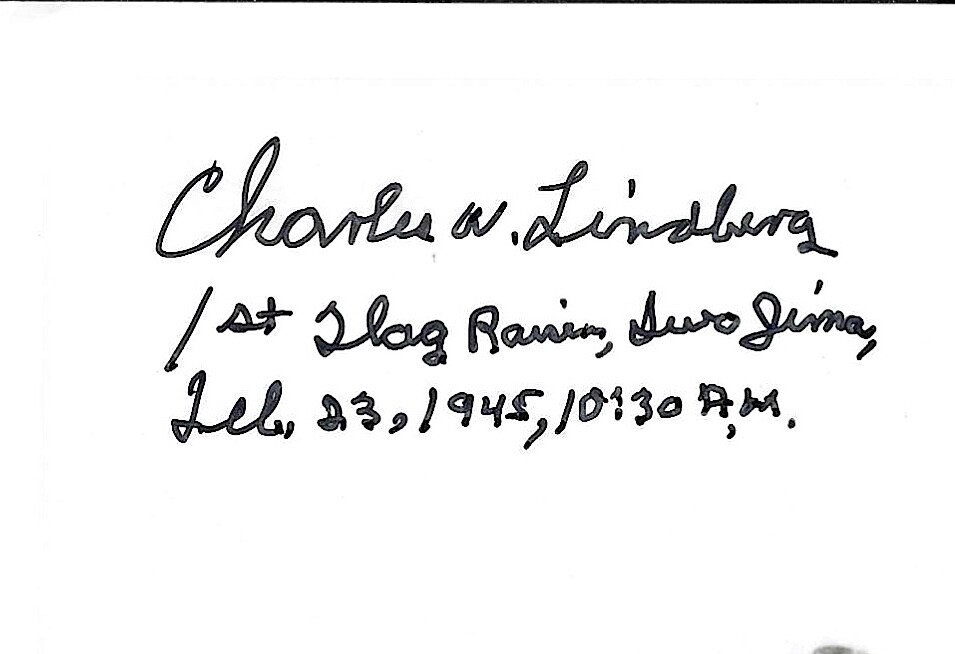 Charles W. Lindberg
1st Flag Raising, Iwo Jima,
Feb. 23, 1945, 10:30 A.M.